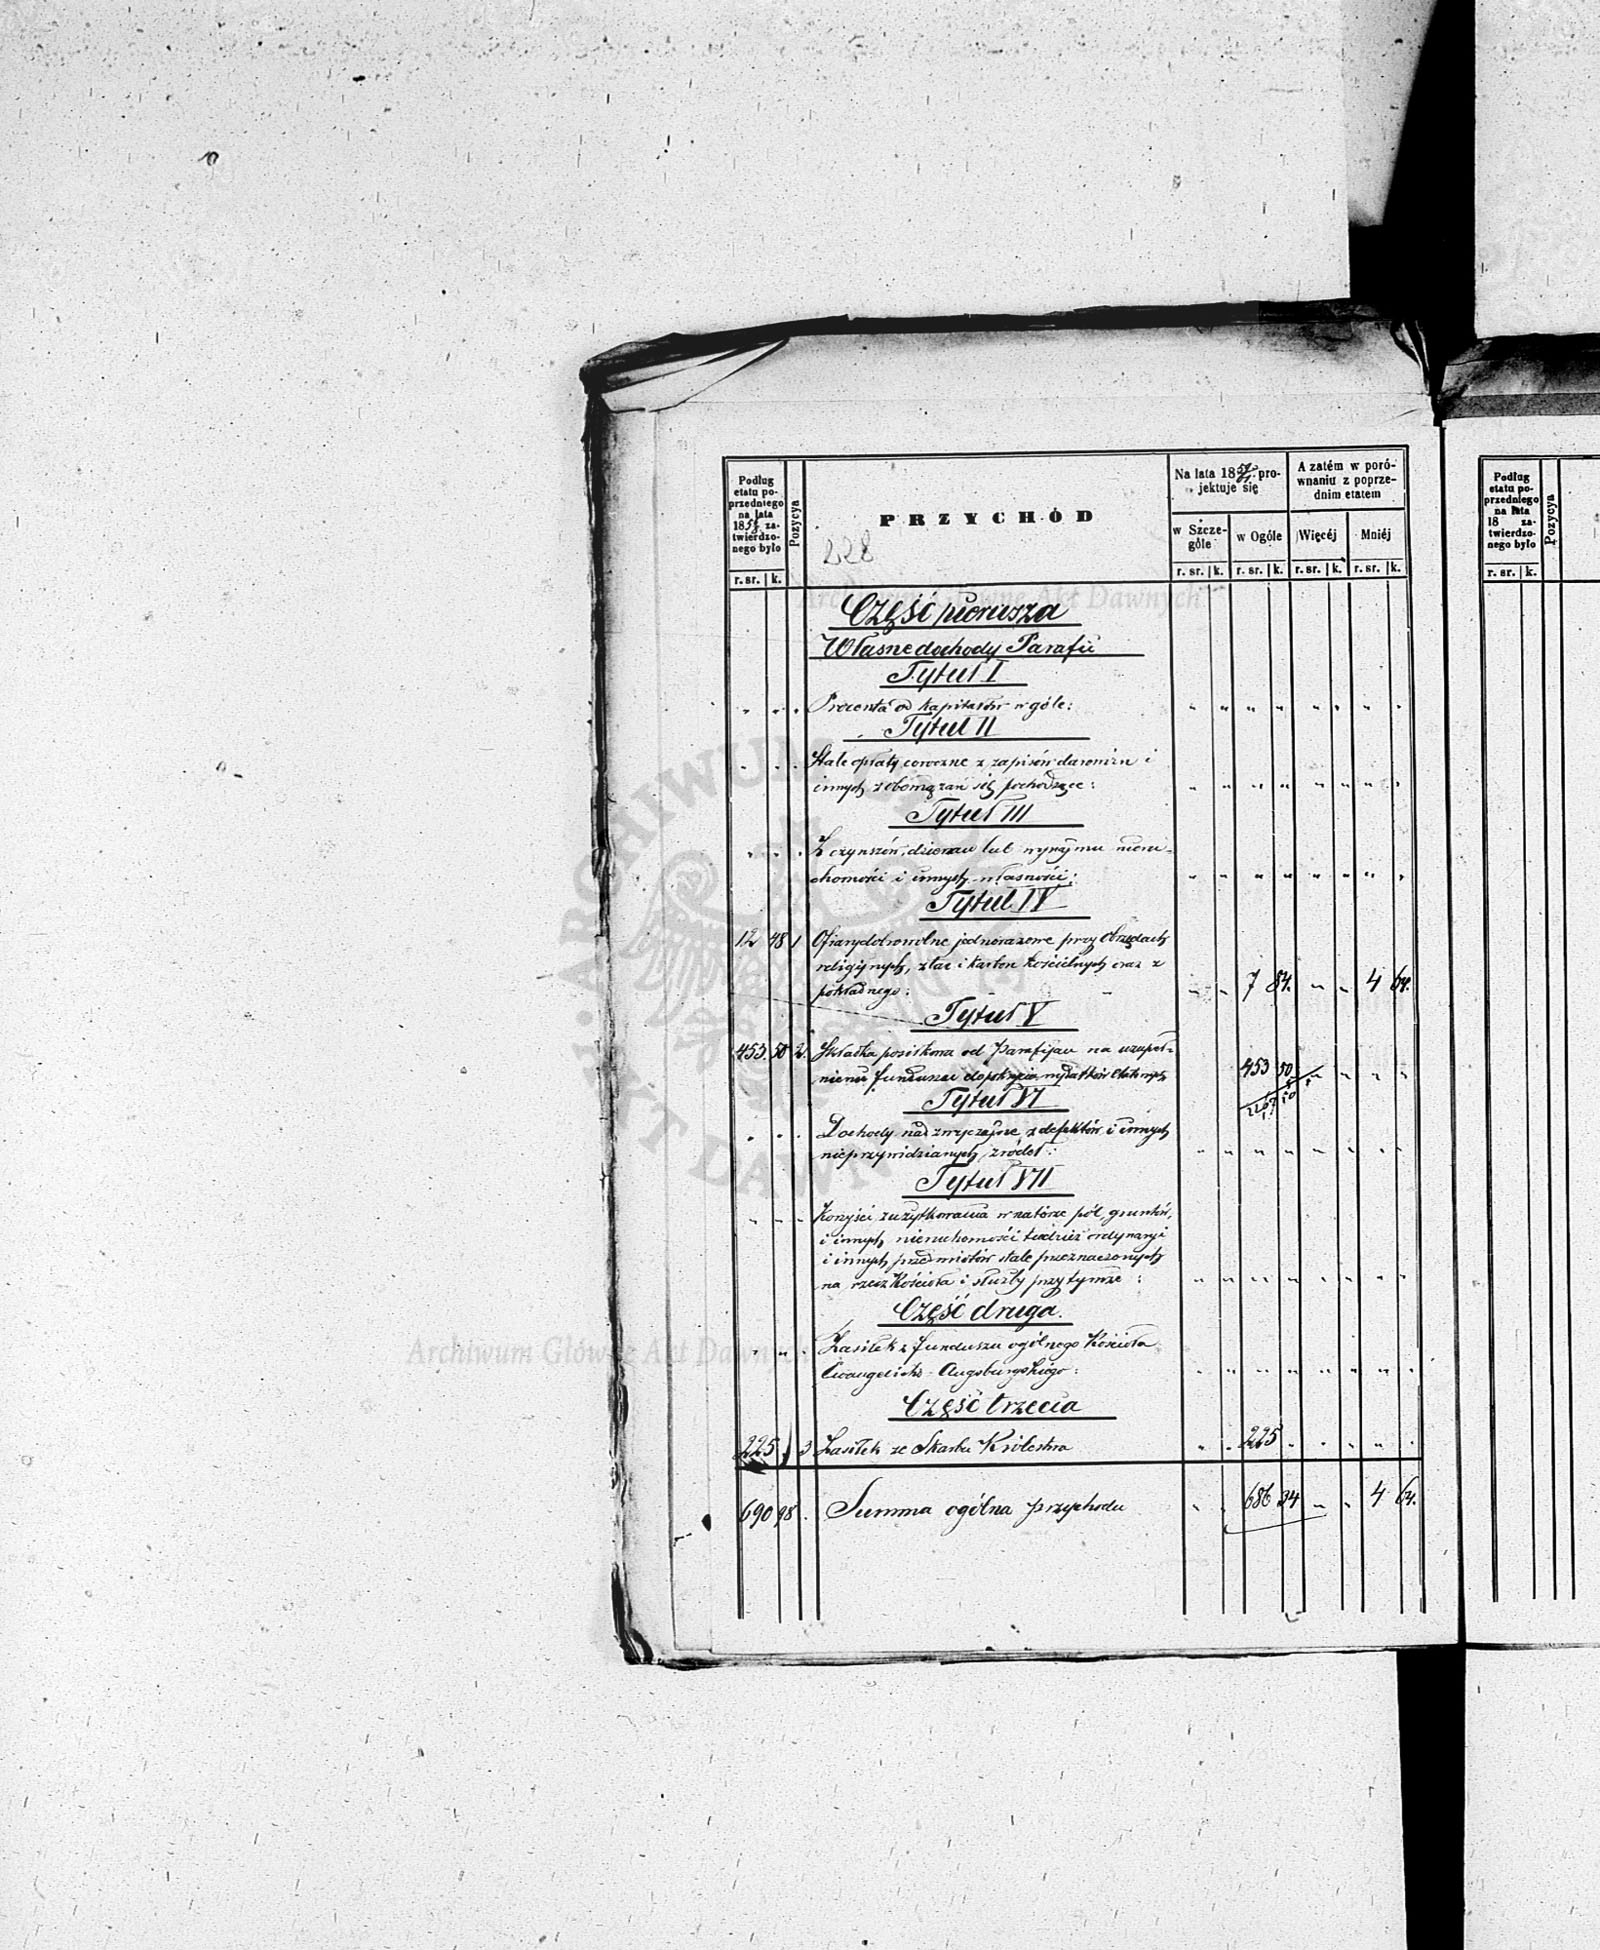 Podług etatu poprzedniego na lata 1854 zatwierdzonego było
Pozycya
PRZYCHÓD
228
Na lata 18 projektuje się
A zatém w porównaniu z poprzednim etatem
w Szczególe
w Ogóle
Więcéj
Mniéj
r. sr. k.
r. sr. k. r. sr. k. r. sr. k. r. sr. k.
Część pierwsza
Własne dochody Parafii
Tytuł I
Procenta od kapitałów w góle:
Tytuł II
Stałe opłaty coroczne z zapisów darowizn i
innych zobowiązań się pochodzące:
Tytuł III
Z czynszów, dzierżaw lub wynajmu nieru-
chomości i innych własności:
Tytuł IV
12 48 1 Ofiary dobrowolne jednorazowe przy obrzędach
religijnych, z tac i karbon kościelnych oraz z
pokładnego: 7 84. 4 64.
Tytuł V
453 50 2. Składka posiłkowa od Parafijan na uzupeł-
nienie funduszu do pokrycia wydatków etatowych 453 50
2267 50
Tytuł VI
Dochody nadzwyczajne z defektów i innych
nieprzewidzianych źródeł:
Tytuł VII
Korzyści zużytkowania w naturze pól, gruntów,
i innych nieruchomości tudzież ordynaryi
i innych przedmiotów stale przeznaczonych
na rzecz Kościoła i służby przy tymże:
Część druga.
Zasiłek z funduszu ogólnego Kościoła
Ewangelicko-Augsburgskiego:
Część trzecia
225 3 Zasiłek ze Skarbu Królestwa 225
690 98 Summa ogólna przychodu 686 34 4 64.
Podług etatu poprzedniego na lata 18 zatwierdzonego było
Pozycya
r. sr. k.
Archiwum Główne Akt Dawnych
Archiwum Główne Akt Dawnych